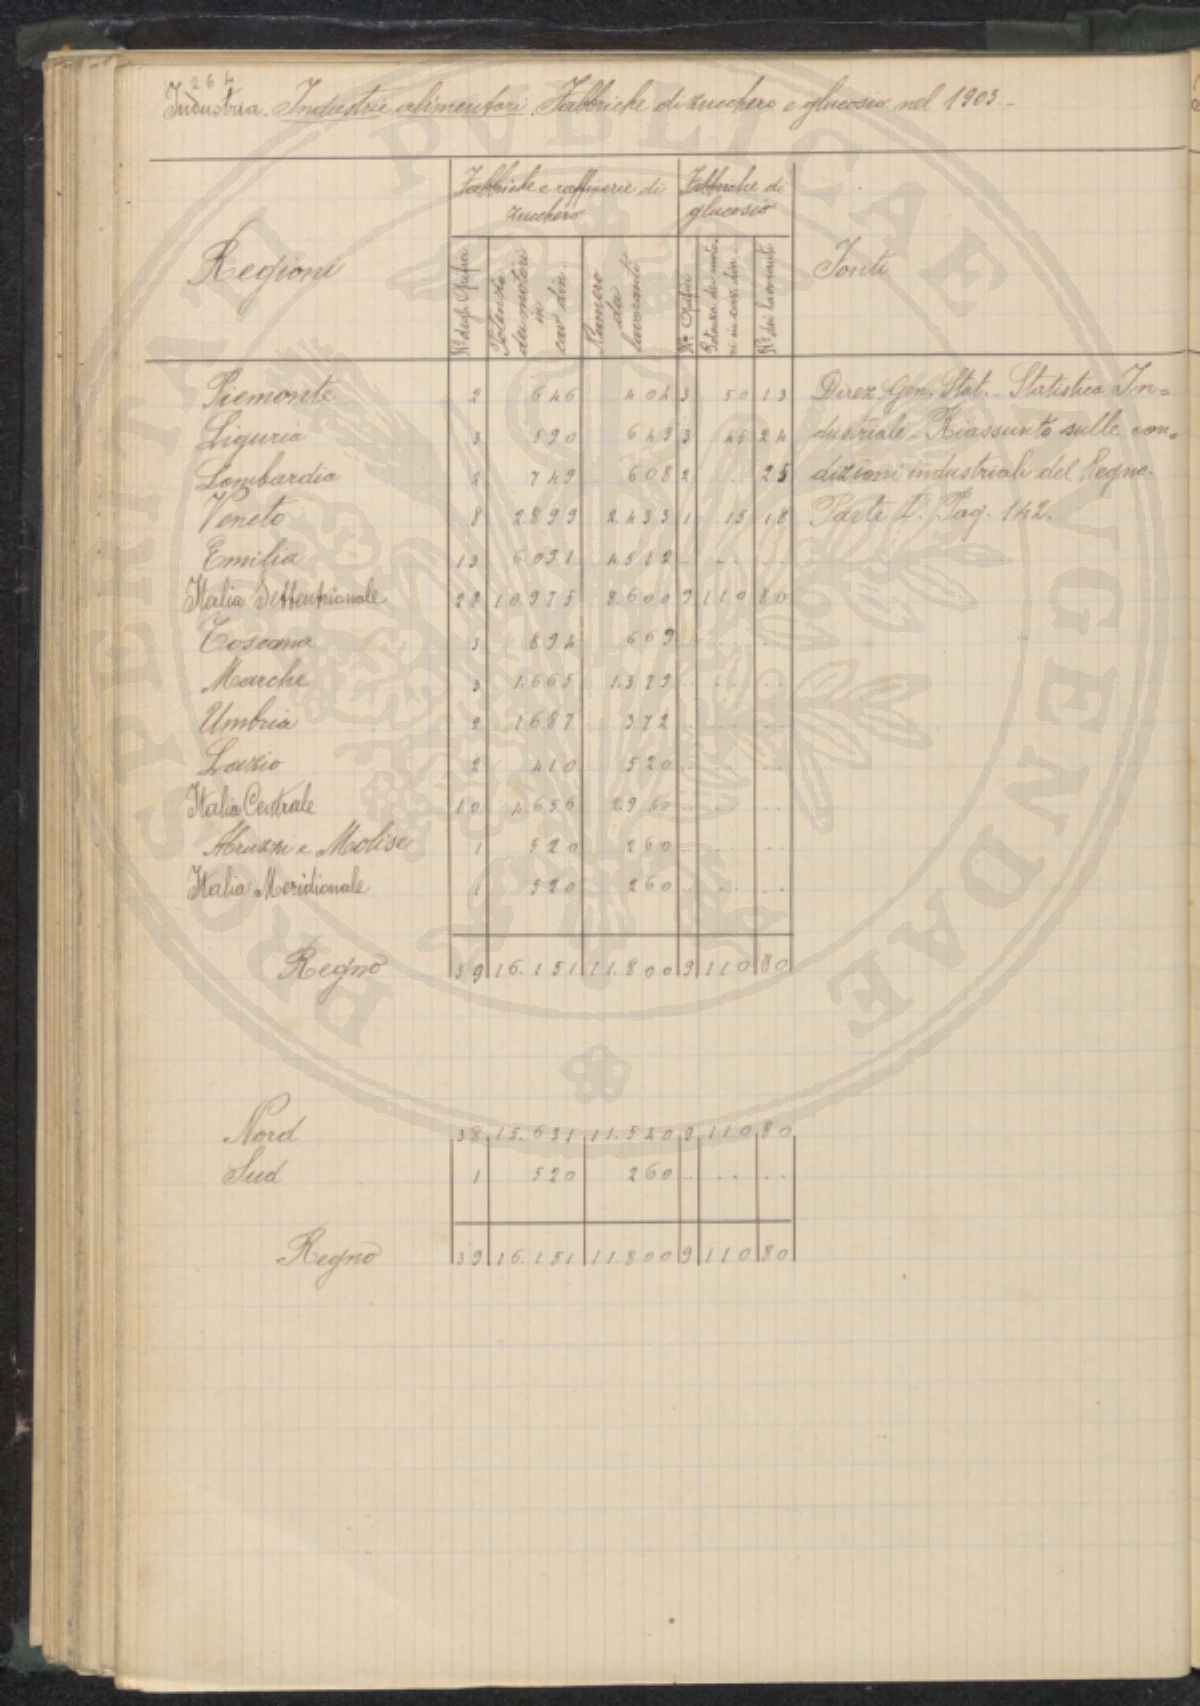 264
Industria. Industrie alimentari. Fabbriche di zucchero e glucosio nel 1903.-
Regioni
Fabbriche e raffinerie di zucchero
Fabbriche di glucosio
Fonti
N.° degli Opifici
Potenza dei motori in cav. din.
Numero dei lavoranti
N.° Opifici
Potenza dei motori in cav. din.
N.° dei lavoranti
Piemonte 2 646 404 3 50 13 Direz. Gen. Stat.- Statistica In=
Liguria 3 590 643 3 45 24 dustriale - Riassunto sulle con=
Lombardia 2 749 608 2 .. 25 dizioni industriali del Regno.
Veneto 8 2899 2.433 1 15 18 Parte I. Pag. 142.
Emilia 13 6.091 4512 .. .. ..
Italia Settentrionale 28 10.975 8.600 9 110 80
Toscana 3 894 669 .. .. ..
Marche 3 1.665 1.379 .. .. ..
Umbria 2 1687 372 .. .. ..
Lazio 2 410 520 .. .. ..
Italia Centrale 10 4.656 2.940 .. .. ..
Abruzzi e Molise 1 520 260 .. .. ..
Italia Meridionale 1 520 260 .. .. ..
Regno 39 16.151 11.800 9 110 80
Nord 38 15.631 11.540 9 110 80
Sud 1 520 260 .. .. ..
Regno 39 16.151 11.800 9 110 80
PROSPERITATI PUBLICAE AUGENDAE